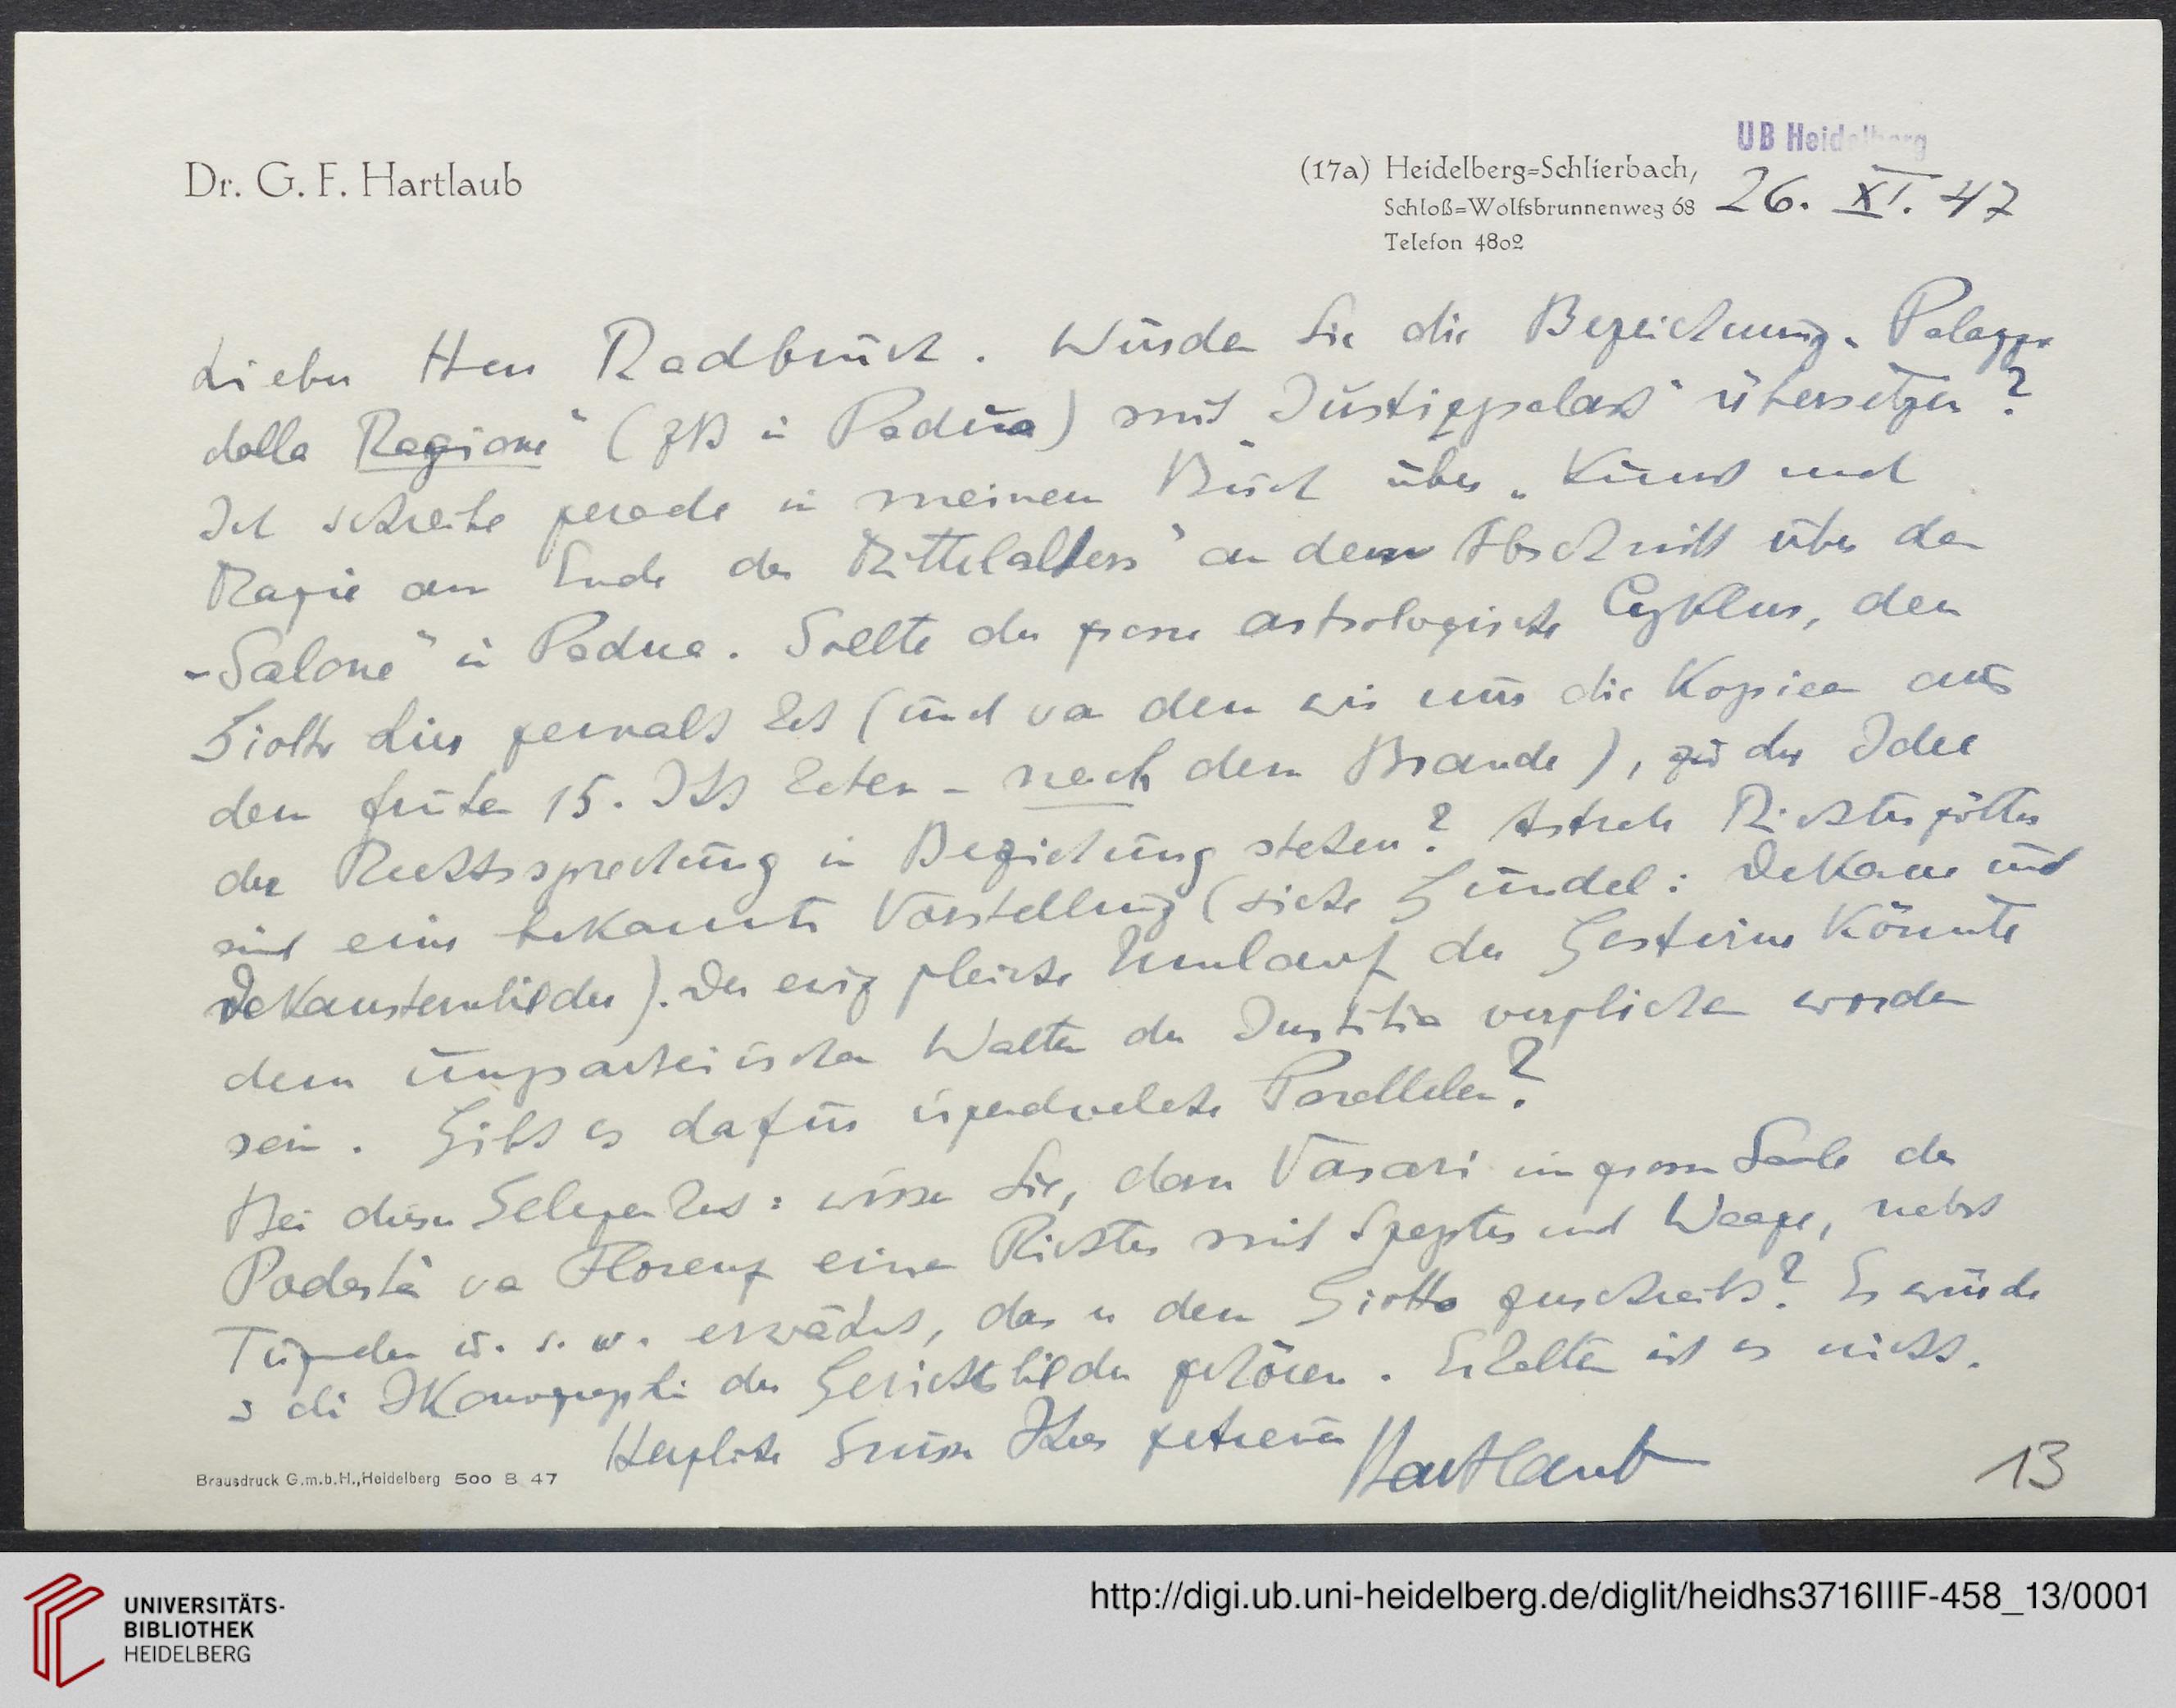 UB Heidelberg
Dr. G. F. Hartlaub
(17a) Heidelberg=Schlierbach,
Schloß=Wolfsbrunnenweg 68
Telefon 4802
26. XI. 47
Lieber Herr Radbruch. Würden Sie die Bezeichnung „Palazzo
della Ragione" (zB in Padua) mit „Justizpalast" übersetzen?
Ich schreibe gerade in meinem Buch über „Kunst und
Magie am Ende des Mittelalters" an dem Abschnitt über den
„Salone" in Padua. Sollte der grosse astrologische Cyklus, den
Giotto hier gemalt hat (und von dem wir nur die Kopien aus
dem frühen 15. Jhh haben – nach dem Brande), zu der Idee
der Rechtssprechung in Beziehung stehen? Astrale Richtergötter
sind eine bekannte Vorstellung (siehe Gundel: Dekane und
Dekansternbilder). Der ewig gleiche Umlauf der Gestirne könnte
dem unparteiischen Walten der Justitia verglichen worden
sein. Gibt es dafür irgendwelche Parallelen?
Bei dieser Gelegenheit: wissen Sie, dass Vasari im grossen Saale des
Podestà von Florenz einen Richter mit Szepter und Waage, nebst
Tugenden u. s. w. erwähnt, das er dem Giotto zuschreibt? Es würde
z die Ikonographie der Gerichtsbilder gehören. Erhalten ist es nicht.
Herzliche Grüsse Ihres getreuen Hartlaub
13
Brausdruck G.m.b.H., Heidelberg 500 8 47
UNIVERSITÄTS-
BIBLIOTHEK
HEIDELBERG
http://digi.ub.uni-heidelberg.de/diglit/heidhs3716IIIF-458_13/0001